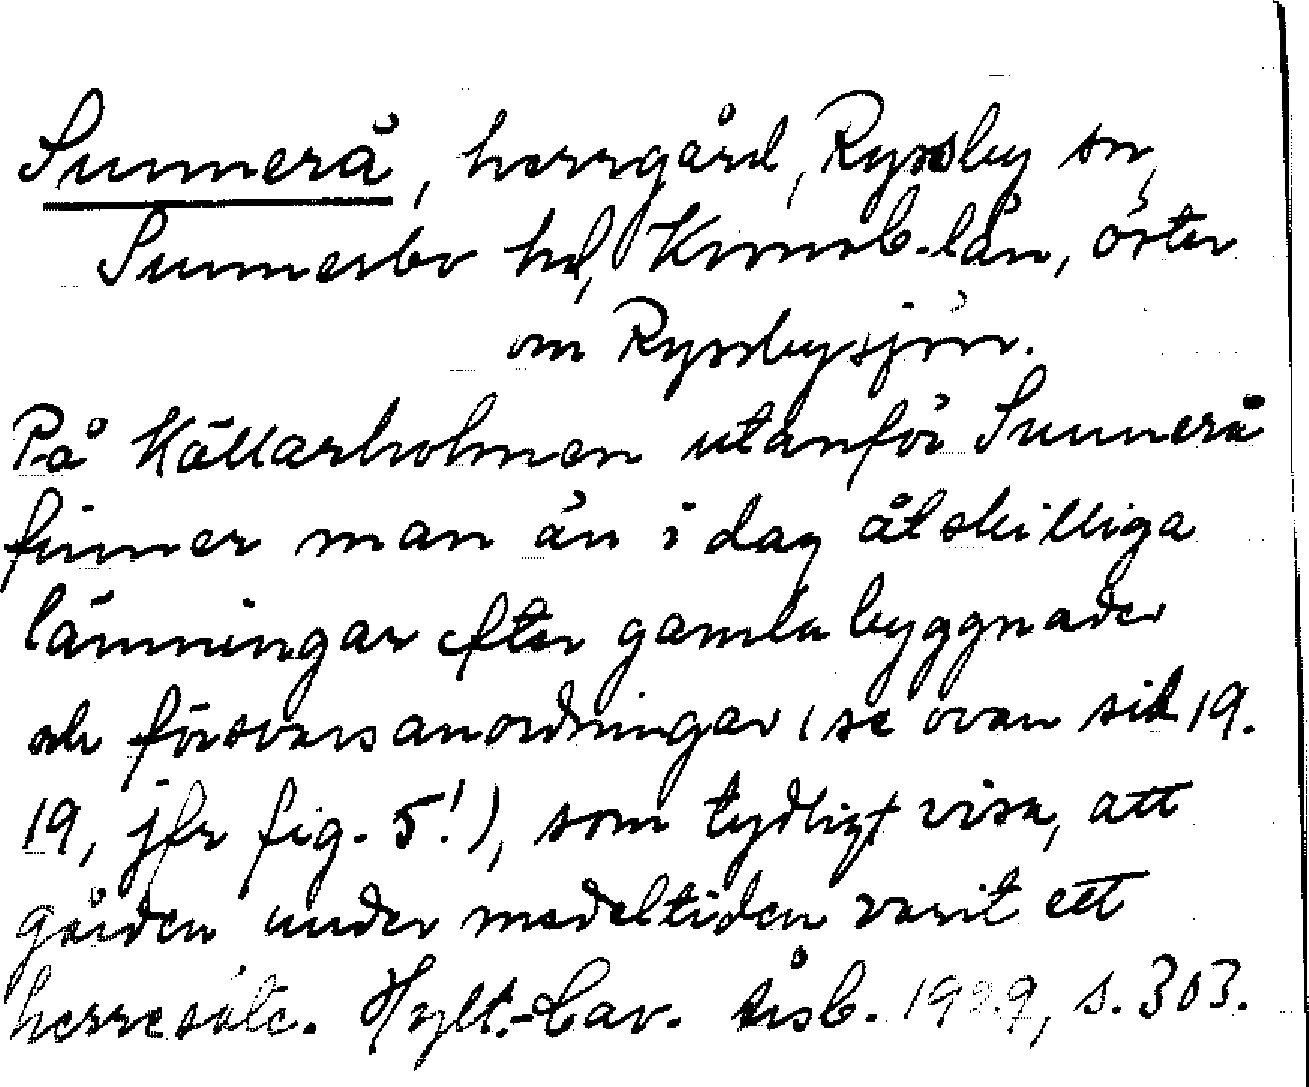 Sunnerå, herrgård, Ryssby sn,
Sunnerbo hd, Kronob. län, öster
om Ryssbysjön.
På Källarholmen utanför Sunnerå
finner man än i dag åtskilliga
lämningar efter gamla byggnader
och försvarsanordningar (se ovan sid 19.
19, jfr fig. 5!), som tydligt visa, att
gården under medeltiden varit ett
herresäte. Hylt.-Cav. årsb. 1929, s. 303.